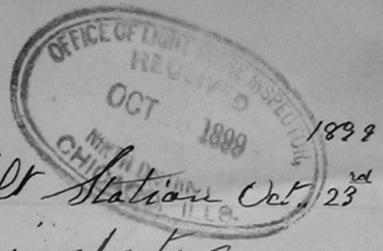 OFFICE OF LIGHT HOUSE INSPECTOR,
RECEIVED
OCT 1899
NINTH DISTRICT
CHICAGO, ILLS.
1899
Station Oct. 23rd